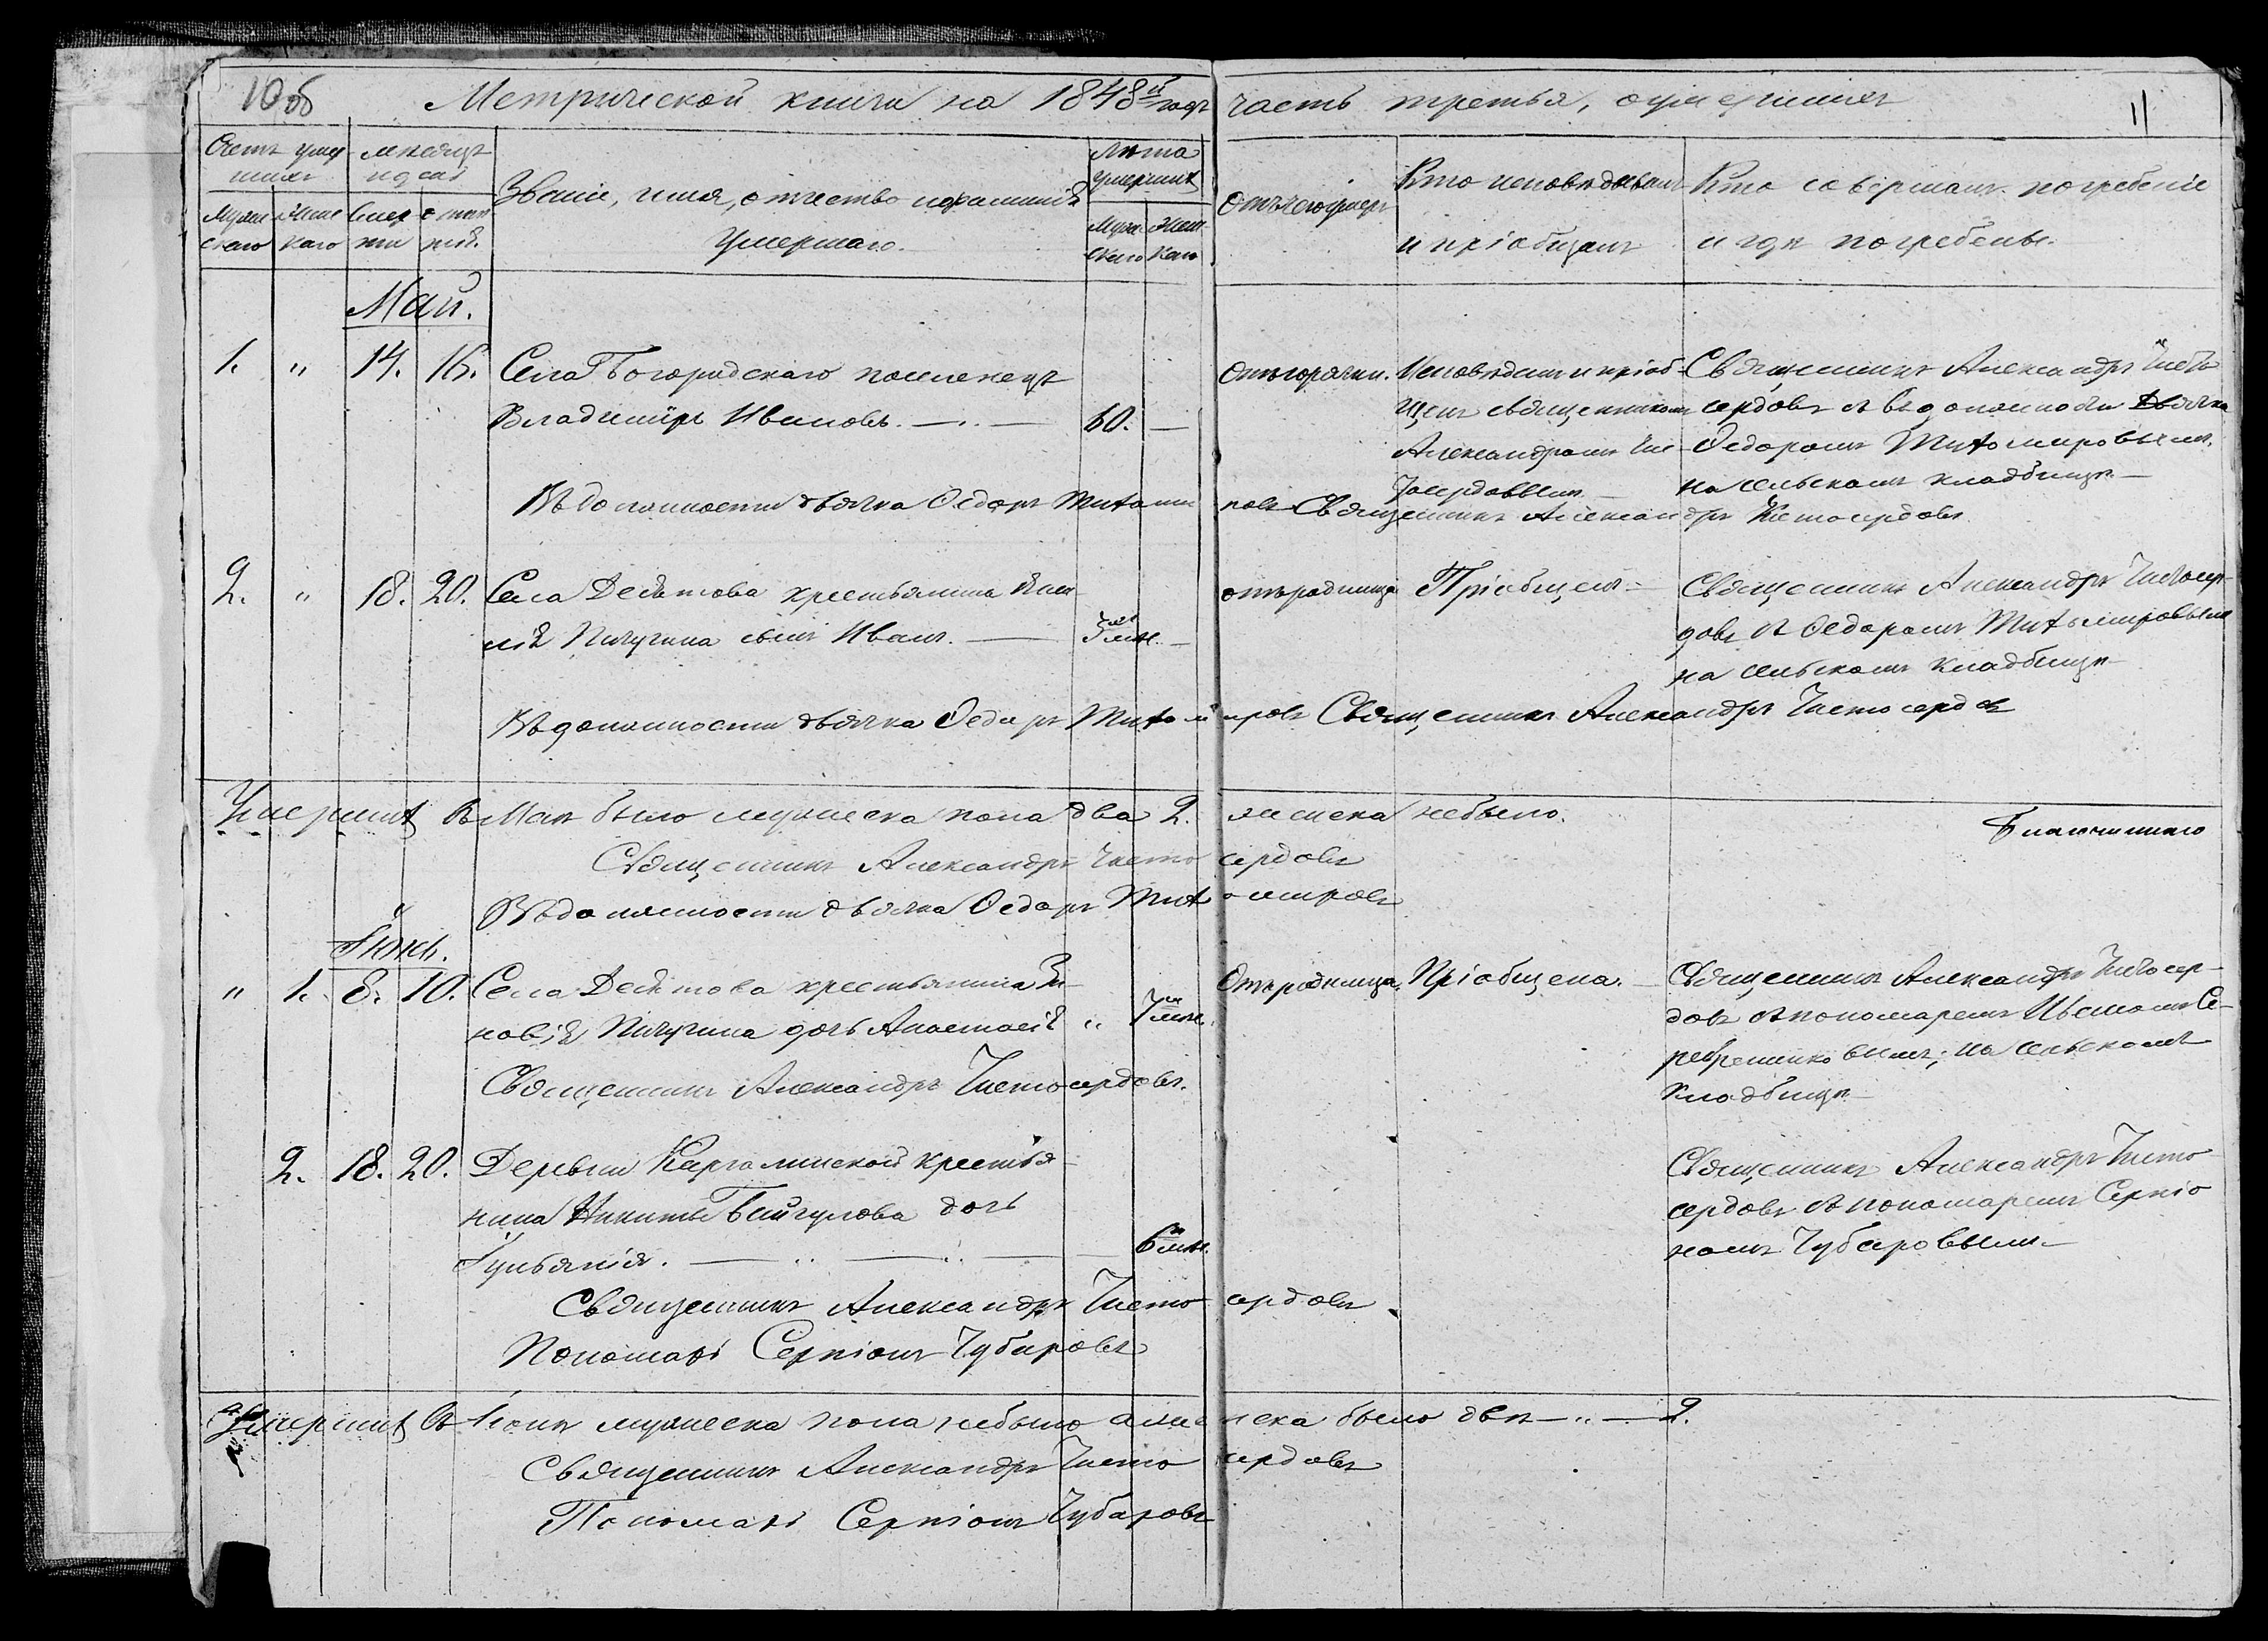 10об
Метрической книги на 1848й годъ часть третья, о умершихъ
11
Счетъ умер
шихъ
мѣсяцъ
и день
Званіе, имя, отчество и фамилія
умершаго.
Лѣта
умершихъ
Отъ чего умеръ
Кто исповѣдывалъ
и пріобщалъ
Кто совершалъ погребеніе
и гдѣ погребены.
Муже
скаго
Жен
каго
Смер
ти
Муже
скаго
Жен
каго
Май.
1. " 14. 16. Села Богородскаго поселенецъ
Владимиръ Ивановъ. 60.
Отъ горячки.
Исповѣданъ и пріоб-
щенъ священникомъ
Александромъ Чис
тосердовымъ.
Священникъ Александръ Чисто
сердовъ съ въ должности Дьячка
Ѳедоромъ Титомировымъ.
на сельскомъ кладбищѣ.
Въ должности дьячка Ѳедоръ Титоми ровъ Священникъ Александръ Чистосердовъ
2. " 18. 20. Села Десятова крестьянина
Пичугина сынъ Иванъ. мѣс.
отъ родимца Пріобщенъ
Священникъ Александръ Чистосер-
довъ съ Ѳедоромъ Титомировымъ
на сельскомъ кладбищѣ
Въ должности дьячка Ѳедоръ Титоми ровъ Священникъ Александръ Чистосердовъ
Умершихъ въ Маѣ было мужеска пола два 2. женска небыло.
Благочиннаго
Священникъ Александръ Чистосердовъ
Въ должности дьячка Ѳедоръ Титомировъ
Іюнь.
" 1. 8. 10. Села Десятова крестьянина Зи-
новія Пичугина дочь Анастасія " 7 мѣс.
Отъ родимца. Пріобщена.
Священникъ Александръ Чистосер-
довъ съ пономаремъ Се-
ребренниковымъ; на сельскомъ
кладбищѣ
Священникъ Александръ Чистосердовъ.
2. 18. 20. Деревни Каргалинской крестья
нина Никиты Байгулова дочь
Гульянія. 6 мѣс.
Священникъ Александръ Чисто
сердовъ съ пономаремъ Серпіо
номъ Чубаровымъ
Священникъ Александръ Чистосердовъ
Пономарь Серпіонъ Чубаровъ
Умершихъ въ Іюнѣ мужеска пола небыло а женска было двѣ 2.
Священникъ Александръ Чистосердовъ
Пономарь Серпіонъ Чубаровъ